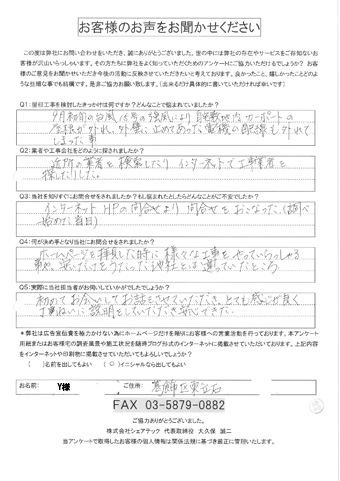 お客様のお声をお聞かせください
この度は弊社にお問い合わせをいただき、誠にありがとうございました。世の中には弊社の存在やサービスをご存知ないお
客様が沢山いらっしゃいます。その方たちに弊社をよく知っていただくためのアンケートにご協力いただけるでしょうか?お
客様のご意見をお聞かせいただき今後の活動に反映させていただきたいと考えております。良かったこと、嬉しかったことどのよ
うな些細な事でも結構です。是非ご協力お願い致します。(出来るだけ具体的に書いていただければ幸いです)
Q1:屋根工事を検討したきっかけは何ですか?どんなことで悩まれていましたか?
9月初旬の台風15号の強風により自宅敷地内カーポートの
屋根が外れ、外壁に止めてあった電線の配線も外れて
しまった事
Q2:業者や工事会社をどのように探されましたか?
近所の業者を検索したりインターネットで工事業者を
探したりした。
Q3:当社を知りすぐにお問合せをされましたか?もし悩まれたとしたらどんなことがご不安でしたか?
インターネットHPの問合せより問合せをおこなった(調べ
始めた当日)
Q4:何が決め手となり当社にお問合せをされましたか?
ホームページを拝見した時に様々な工事をやっていらっしゃる
安いだけをうたった他社とは違っていたところ
Q5:実際に当社担当者がお伺いしていかがでしたでしょうか?
初めてお会いしてお話をさせていただき、とても感じが良く
丁ねいに説明をしていただき安心できた。
*弊社は広告宣伝費を極力かけない為にホームページだけを頼りにお客様への営業活動を行っております。本アンケート
用紙またはお客様宅の調査風景や施工状況を随時ブログ形式のインターネットに掲載させていただいております。上記内容
をインターネットや印刷物に掲載させていただいてもよろしいでしょうか?
( )名前を出してもよい (○)イニシャルなら出してもよい
お名前: Y様 ご住所: 葛飾区東立石
FAX 03-5879-0882
ご協力ありがとうございました。
株式会社シェアテック 代表取締役 大久保 誠二
当アンケートで取得したお客様の個人情報は関係法規に基づき厳正に管理いたします。